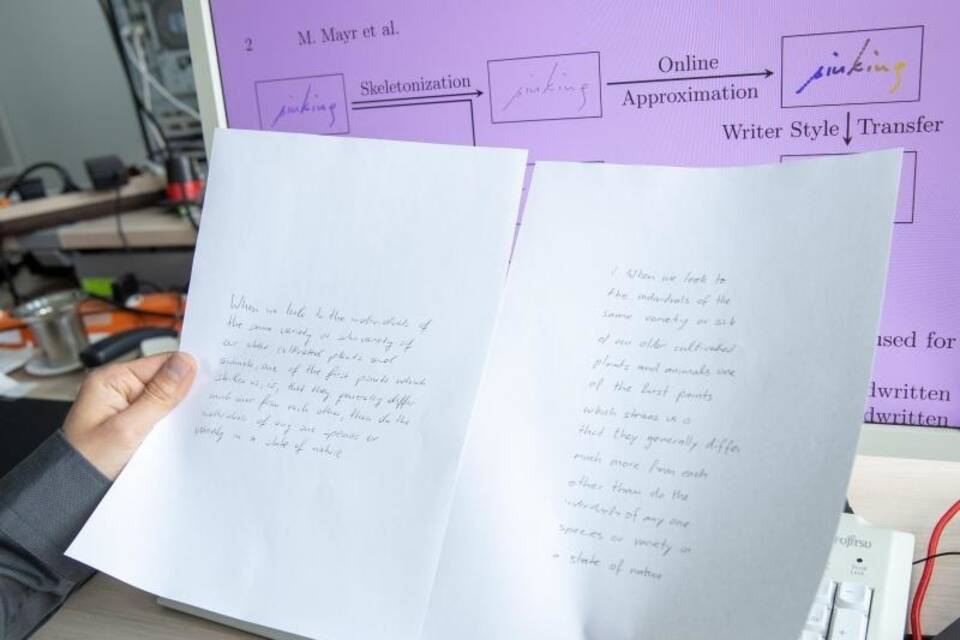 2 M. Mayr et al.
pinking
Skeletonization
pinking
Online
Approximation
pinking
Writer Style Transfer
used for
dwritten
dwritten
When we look to the individuals of
the same variety or sub variety of
our older cultivated plants and
animals, one of the first points which
strikes us, is, that they generally differ
much more from each other, than do the
individuals of any one species or
variety in a state of nature
When we look to
the individuals of the
same variety or sub
of our older cultivated
plants and animals one
of the first points
which us is
that they generally differ
much more from each
other than do the
individuals of any one
species or variety in
a state of nature
FUJITSU